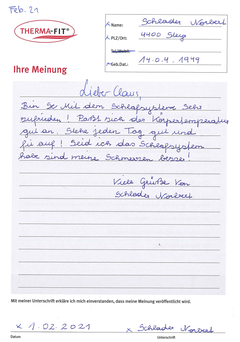 Feb. 21
THERMA-FIT®
Name: Schlader Norbert
PLZ/Ort: 4400 Steyr
Geb.Dat.: 17.04.1979
Ihre Meinung
Lieber Claus,
Bin so Mit dem Schlafsysteme sehr
zufrieden! Paßt sich der Körpertemperatur
gut an. Stehe jeden Tag gut und
fit auf! Seid ich das Schlafsystem
habe sind meine Schmerzen besser!
Viele Grüße von
Schlader Norbert
Mit meiner Unterschrift erkläre ich mich einverstanden, dass meine Meinung veröffentlicht wird.
x 1.02.2021 x Schlader Norbert
Datum Unterschrift